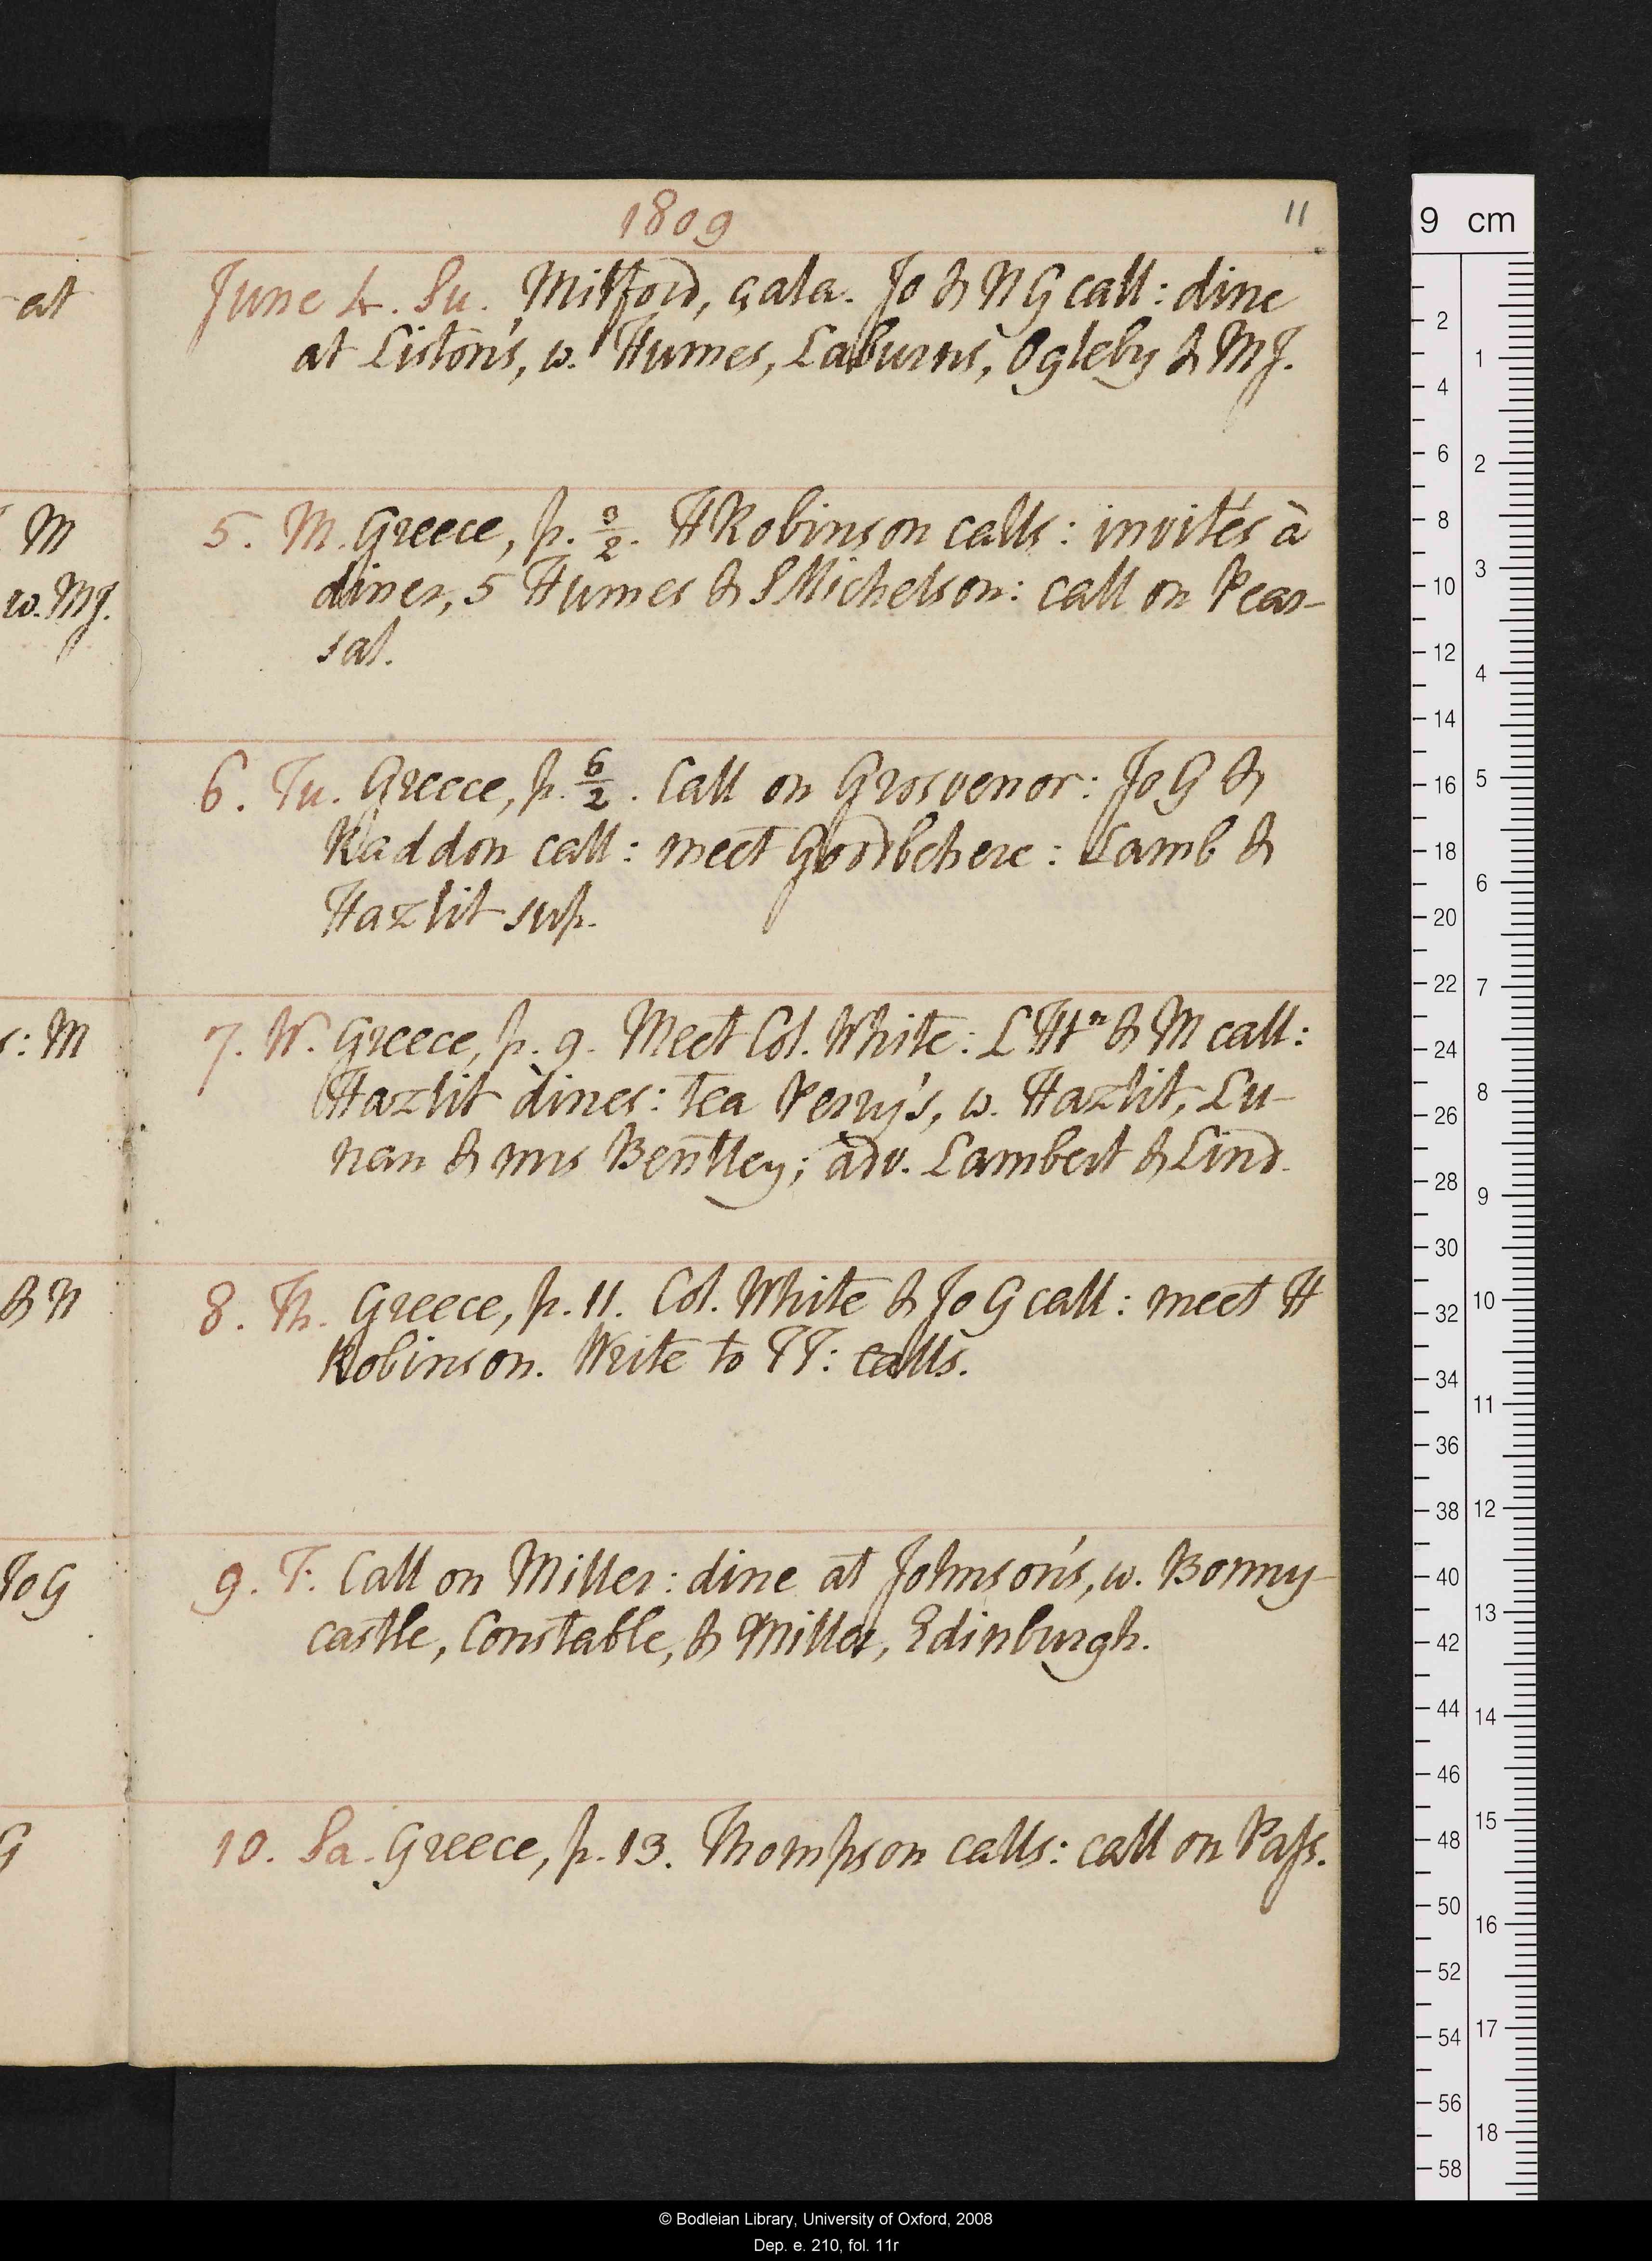 1809
11
June 4. Su. Mitford, çala. Jo & N G call: dine
at Liston's, w. Humes, Laburns, Ogleby & MJ.
5. M. Greece, p. 3/2. H Robinson calls: invités à
diner, 5 Humes & S Michelson: call on Pear-
sal.
6. Tu. Greece, p. 6/2. Call on Grosvenor: Jo G &
Raddon call: meet Goodbehere: Lamb &
Hazlit sup.
7. W. Greece, p. 9. Meet Col. White: L Htn & M call:
Hazlit dines: tea Perry's, w. Hazlit, Lu-
nan & mrs Bentley; adv. Lambert & Lind.
8. Th. Greece, p. 11. Col. White & Jo G call: meet H
Robinson. Write to TT: calls.
9. F. Call on Miller: dine at Johnson's, w. Bonny-
castle, Constable, & Miller, Edinburgh.
10. Sa. Greece, p. 13. Thompson calls: call on Pass.
at
M
w. MJ.
: M
& N
Jo G
G
9 cm
2
4
6
8
10
12
14
16
18
20
22
24
26
28
30
32
34
36
38
40
42
44
46
48
50
52
54
56
58
1
2
3
4
5
6
7
8
9
10
11
12
13
14
15
16
17
18
© Bodleian Library, University of Oxford, 2008
Dep. e. 210, fol. 11r